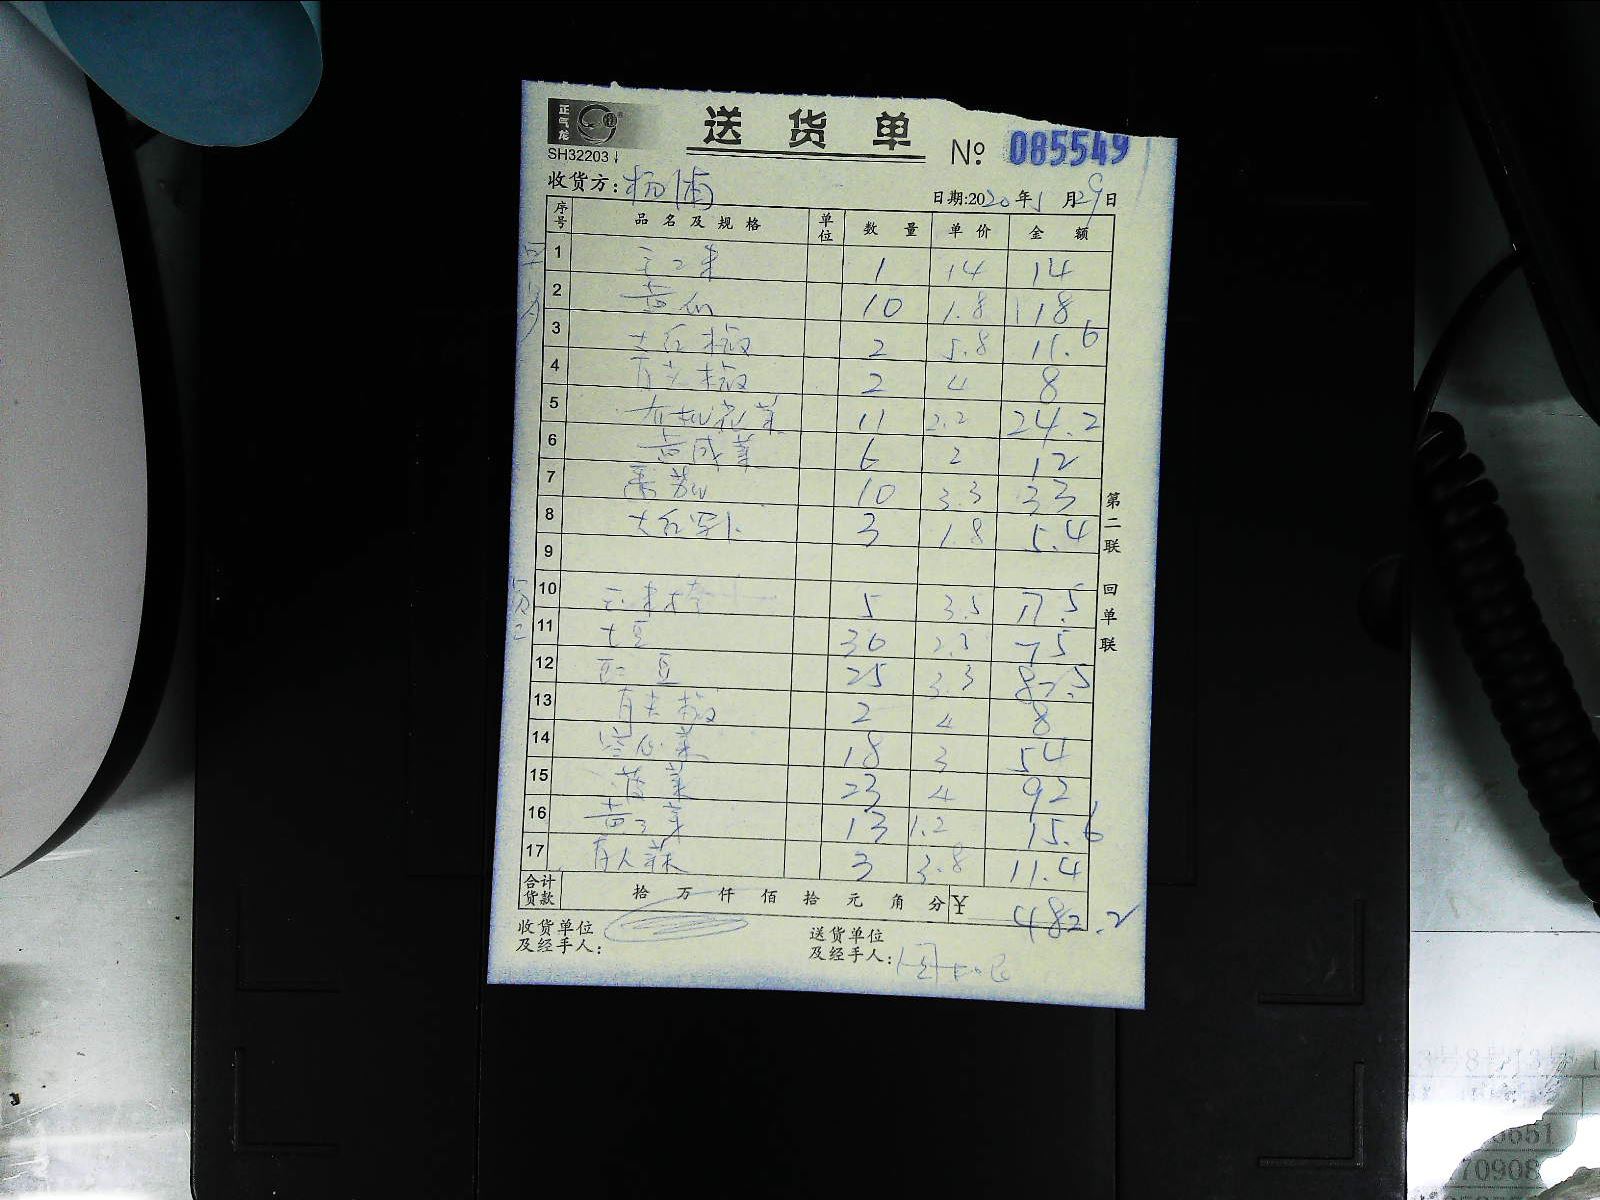 正气龙
送货单
SH32203
No. 085549
收货方: 杨浦
日期:2020年5月29日
序号 品名及规格 单位 数量 单价 金额
1 1 14 14
2 10 1.8 18
3 大红椒 2 5.8 11.6
4 2 4 8
5 有机花菜 11 2.2 24.2
6 6 2 12
7 10 3.3 33
8 大红 3 1.8 5.4
9
10 5 3.5 17.5
11 土豆 30 2.5 75
12 25 3.3 82.5
13 2 4 8
14 空心菜 18 3 54
15 菠菜 23 4 92
16 13 1.2 15.6
17 3 3.8 11.4
合计货款 拾 万 仟 佰 拾 元 角 分 ¥ 482.2
收货单位及经手人:
送货单位及经手人:
第二联 回单联
70908